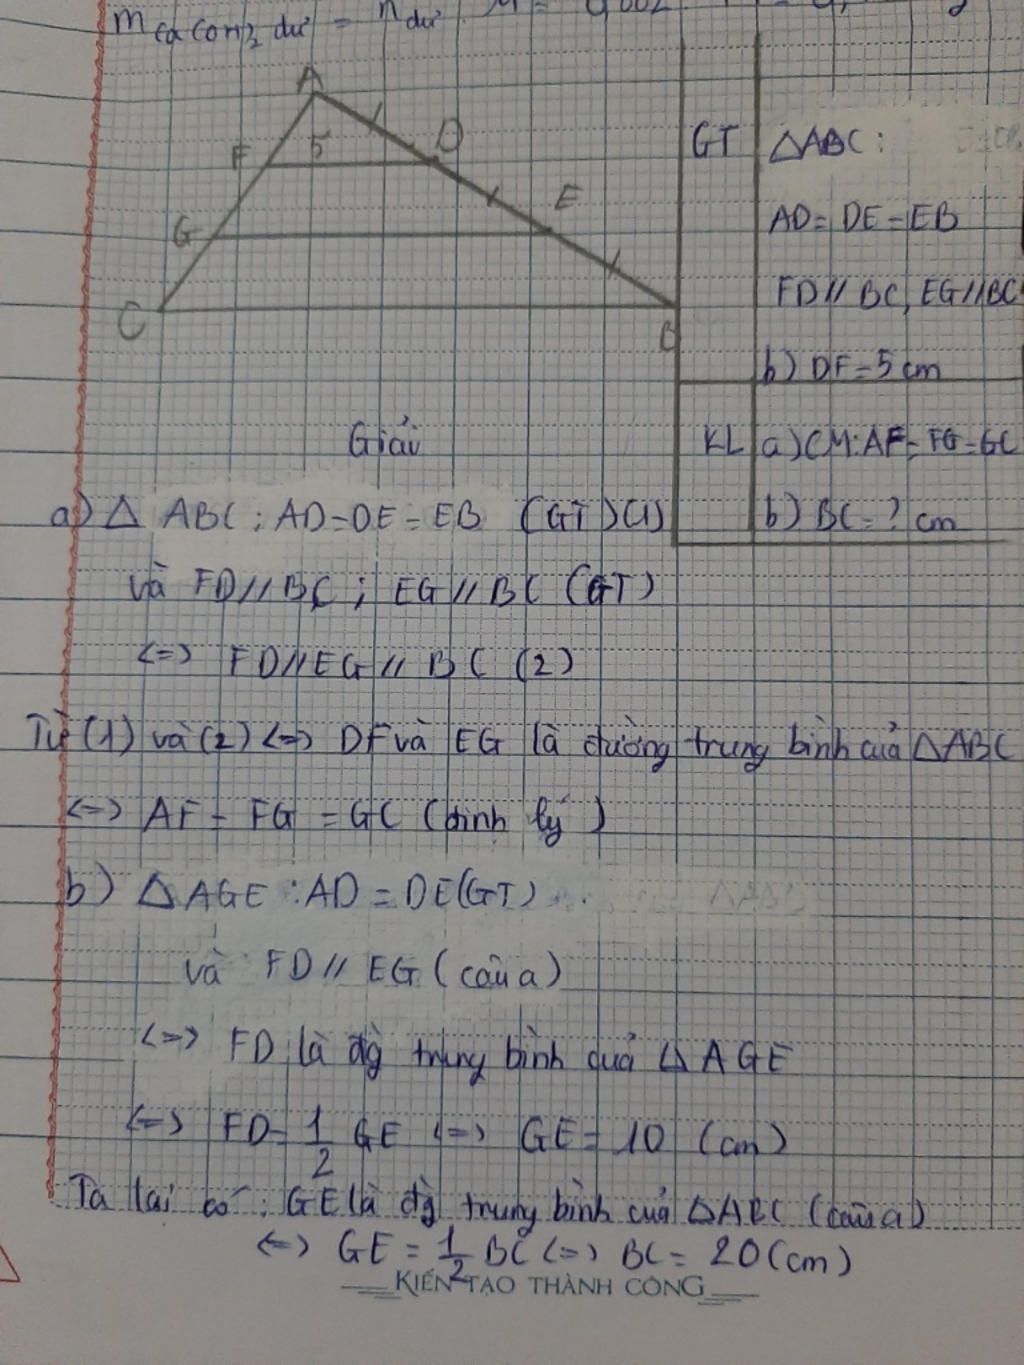 m Ca(OH)₂ dư = n dư
A
F 5 D
G E
C B
GT △ABC:
AD = DE = EB
FD // BC, EG // BC
b) DF = 5 cm
KL a) CM: AF = FG = GC
b) BC = ? cm
Giải
a) △ ABC : AD = DE = EB (GT) (1)
và FD // BC ; EG // BC (GT)
<=> FD // EG // BC (2)
Từ (1) và (2) <=> DF và EG là đường trung bình của △ABC
<=> AF = FG = GC (định lý)
b) △AGE : AD = DE (GT)
và FD // EG (câu a)
<=> FD là đg trung bình quả △AGE
<=> FD = 1/2 GE <=> GE = 10 (cm)
Ta lại có : GE là đg trung bình của △ABC (câu a)
<=> GE = 1/2 BC <=> BC = 20 (cm)
KIẾN TẠO THÀNH CÔNG